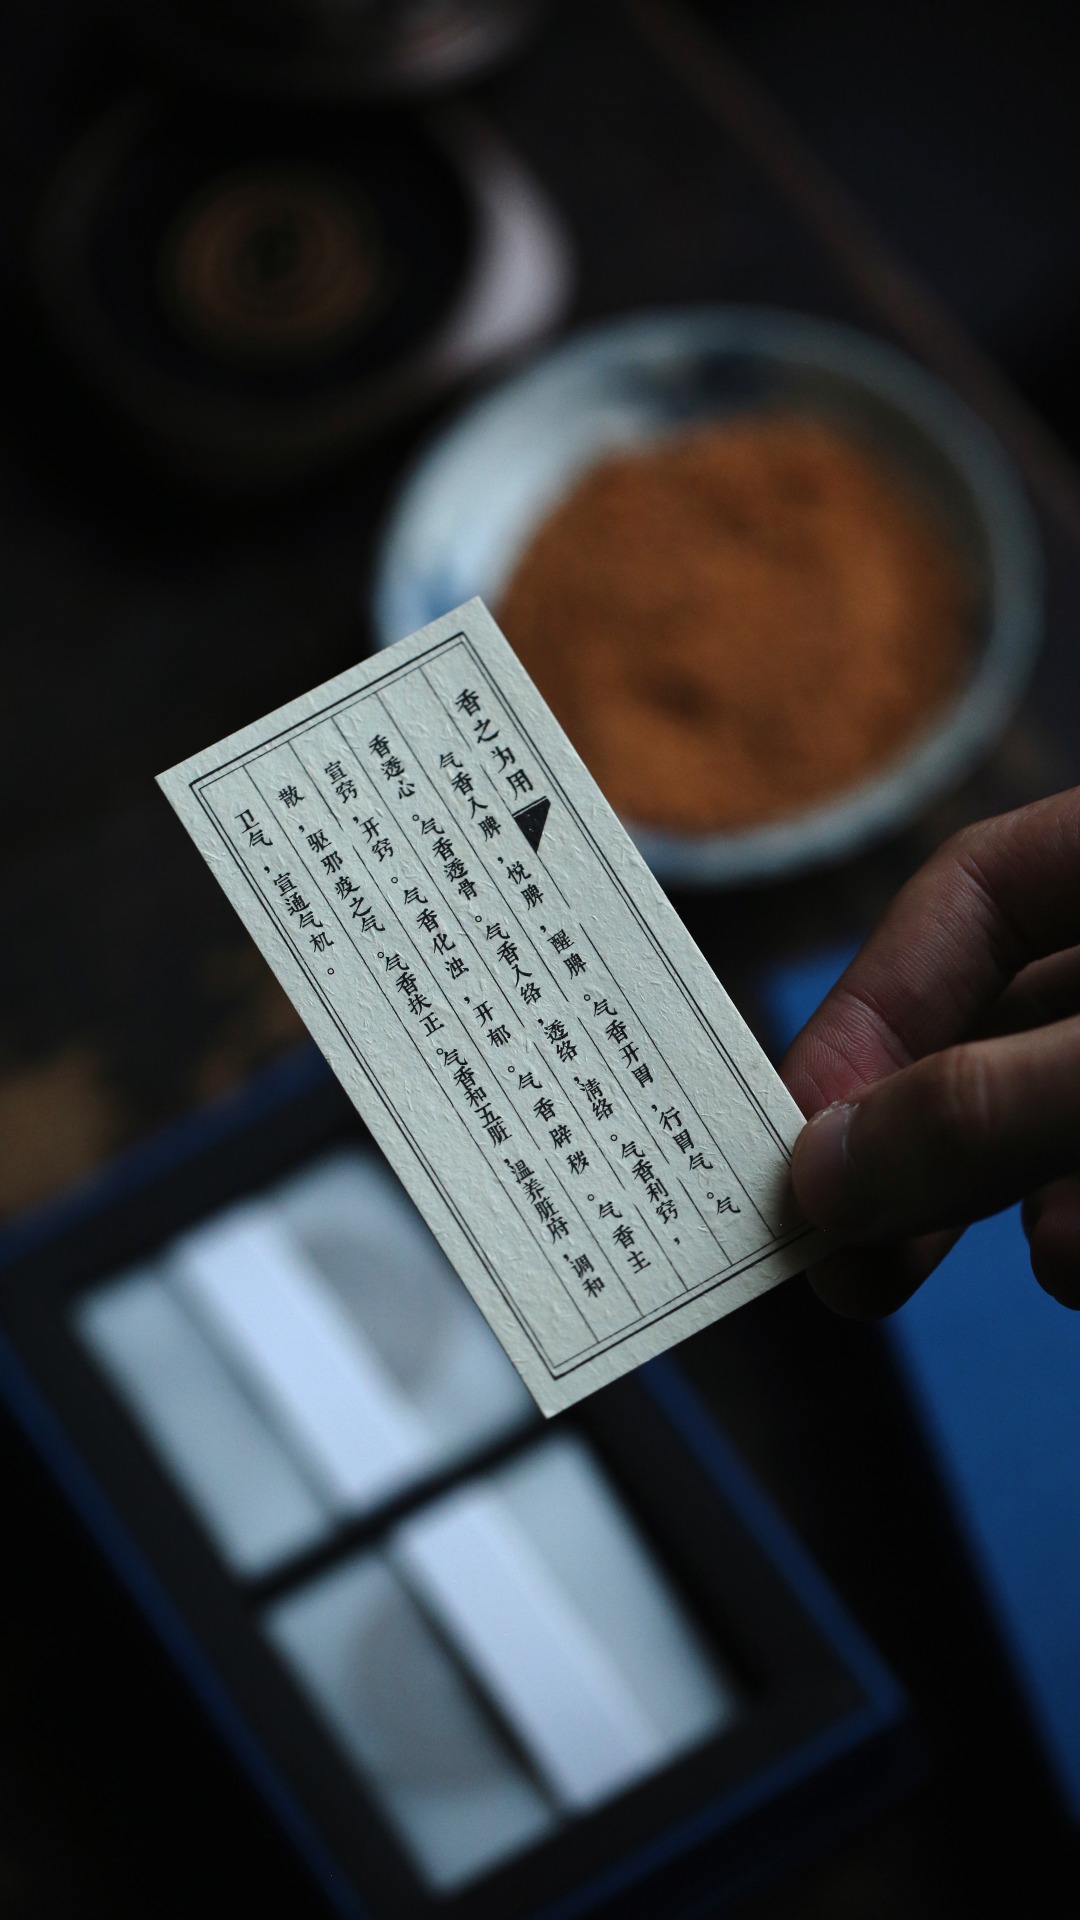 香之为用
气香入脾，悦脾，醒脾。气香开胃，行胃气。气
香透心。气香透骨。气香入络，透络，清络。气香利窍，
宣窍，开窍。气香化浊，开郁。气香辟秽。气香主
散，驱邪疫之气。气香扶正。气香和五脏，温养脏府，调和
卫气，宣通气机。